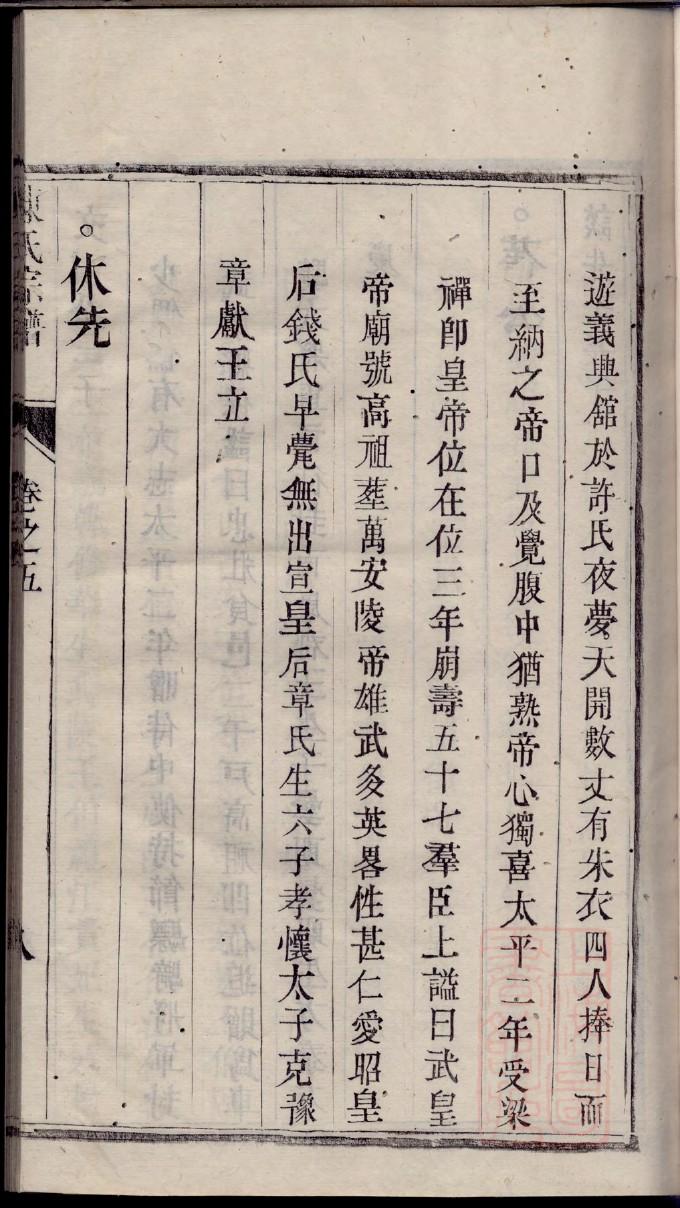 遊義興舘於許氏夜夢天開數丈有朱衣四人捧日而
至納之帝口及覺腹中猶熟帝心獨喜太平二年受梁
禪即皇帝位在位三年崩壽五十七羣臣上謚曰武皇
帝廟號高祖塟萬安陵帝雄武多英畧性甚仁愛昭皇
后錢氏早薨無出宣皇后章氏生六子孝懷太子克豫
章獻王立
。休先
陳氏宗譜 卷之五 八